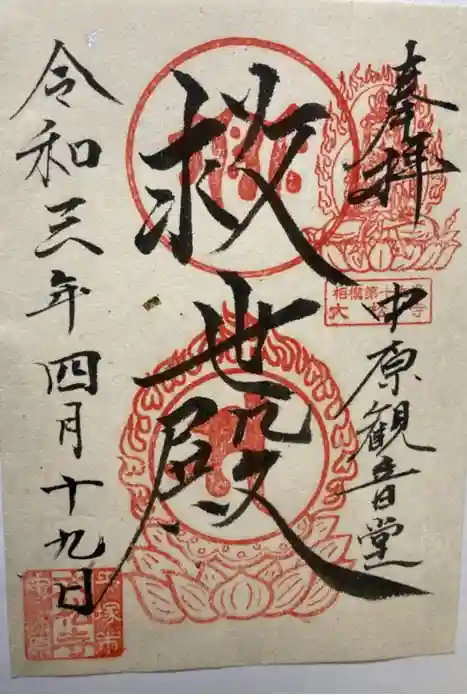 奉拝
中原観音堂
救世殿
令和三年四月十九日
相模第十
大
寺
平塚市
寺